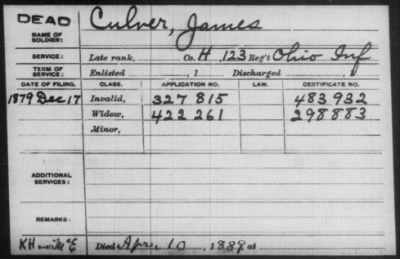 DEAD
NAME OF SOLDIER: Culver, James
SERVICE: Late rank, Co. H, 123 Reg't Ohio Inf
TERM OF SERVICE: Enlisted , 1 Discharged , 1
DATE OF FILING. CLASS. APPLICATION NO. LAW. CERTIFICATE NO.
1879 Dec 17 Invalid, 327 815 483 932
Widow, 422 261 298 883
Minor,
ADDITIONAL SERVICES:
REMARKS:
KH McE Died Apr. 10, 1889, at